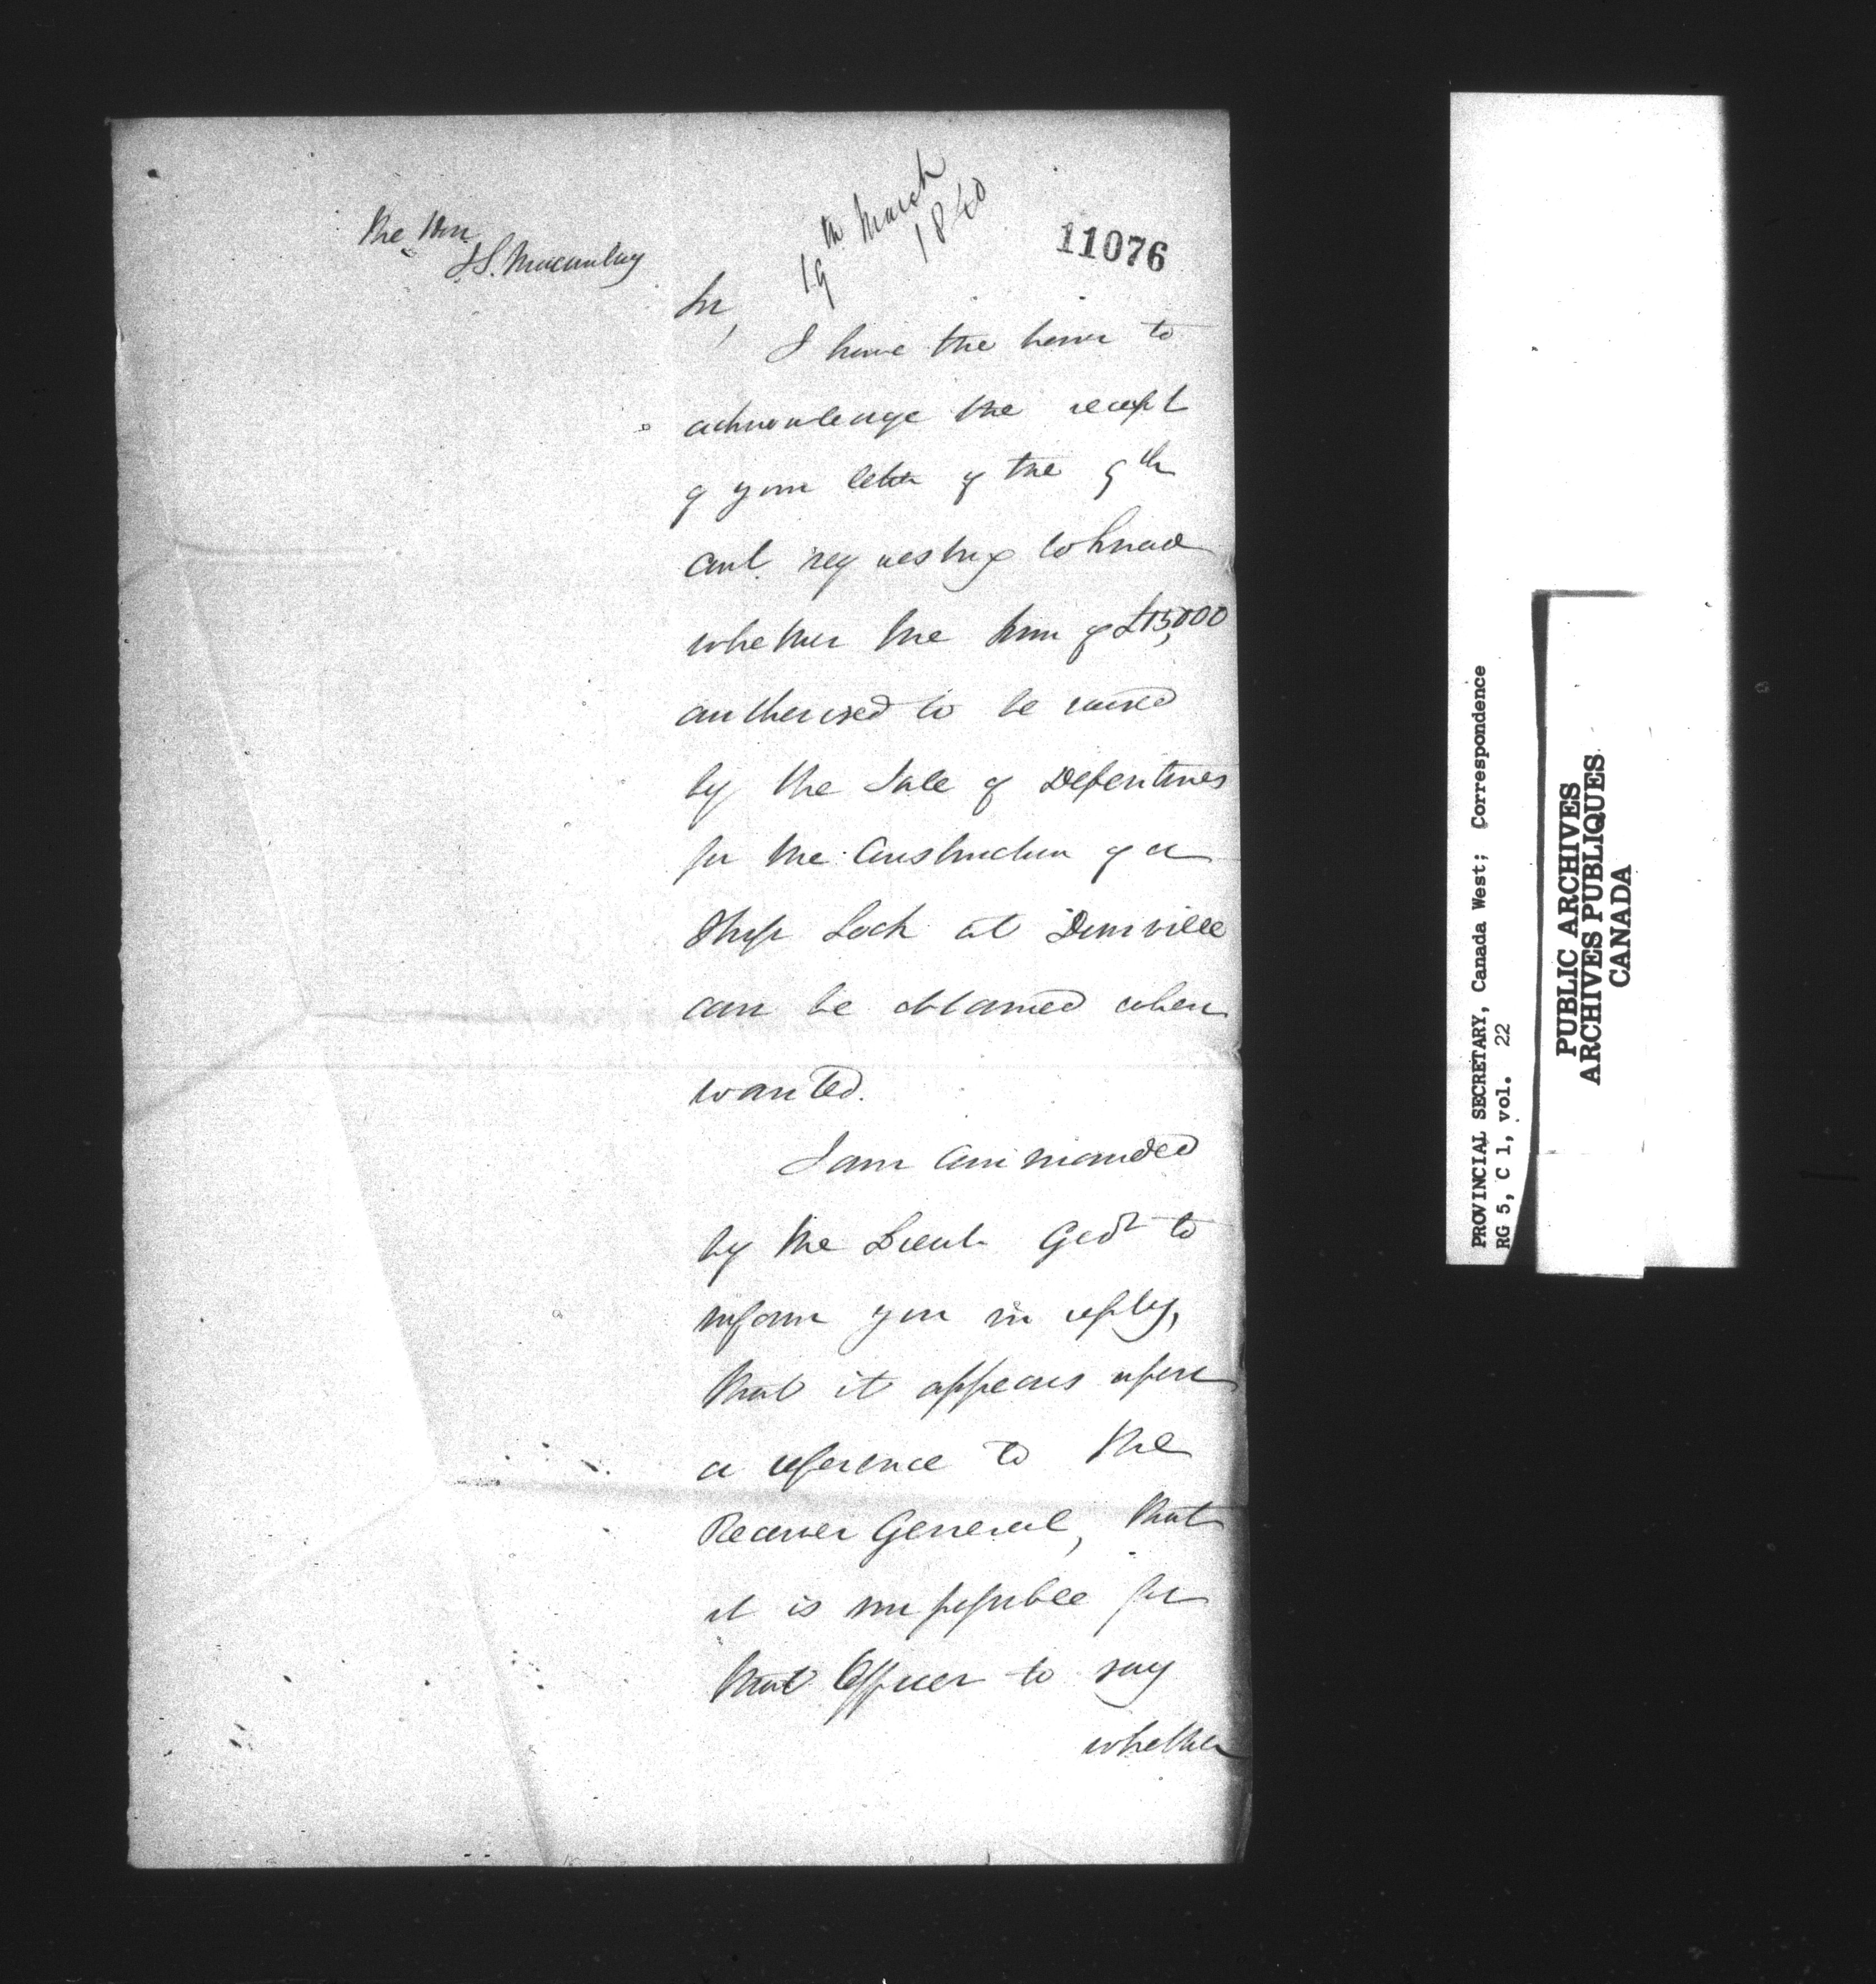 The Hon
J S. Macaulay
19th March
1840
11076
Sir,
I have the honor to
acknowledge the receipt
of your letter of the 9th
requesting to know
whether the sum of £15,000
authorised to be raised
by the Sale of Debentures
for the Construction of a
Ship Lock at Dunville
can be obtained when
wanted.
I am commanded
by the Lieut. Govr to
inform you in reply,
that it appears upon
a reference to the
Receiver General, that
it is impossible for
that Officer to say
whether
PROVINCIAL SECRETARY, Canada West; Correspondence
RG 5, C 1, vol. 22
PUBLIC ARCHIVES
ARCHIVES PUBLIQUES
CANADA